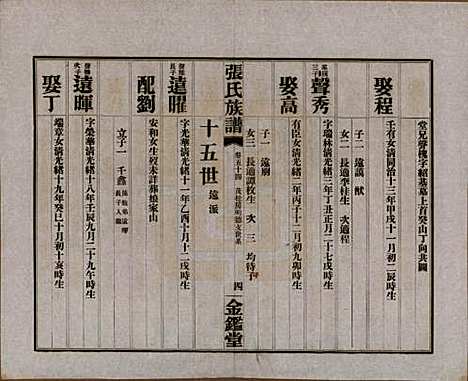 堂兄聲槐字紹基墓上首癸山丁向共圖
娶程
壬有女清同治十三年甲戌十一月初二辰時生
子二 遠讌 猷
女二 長適李柱生 次適程
聲秀
字瑞林清光緒三年丁丑正月二十七戌時生
娶高
有臣女清光緒二年丙子十二月初九卯時生
子一 遠廟
女三 長適譚枚生 次 三 均待字
張氏族譜
卷五十四
四
金鑑堂
十五世 遠派
遠曜
長子
字光華清光緒十一年乙酉十月十二戌時生
配劉
安和女生歿未詳葬娘家山
立子一 千鑫
長子入繼
遠暉
次子
字榮華清光緒十八年壬辰九月二十九午時生
娶丁
瑞章女清光緒十九年癸巳十月初十亥時生